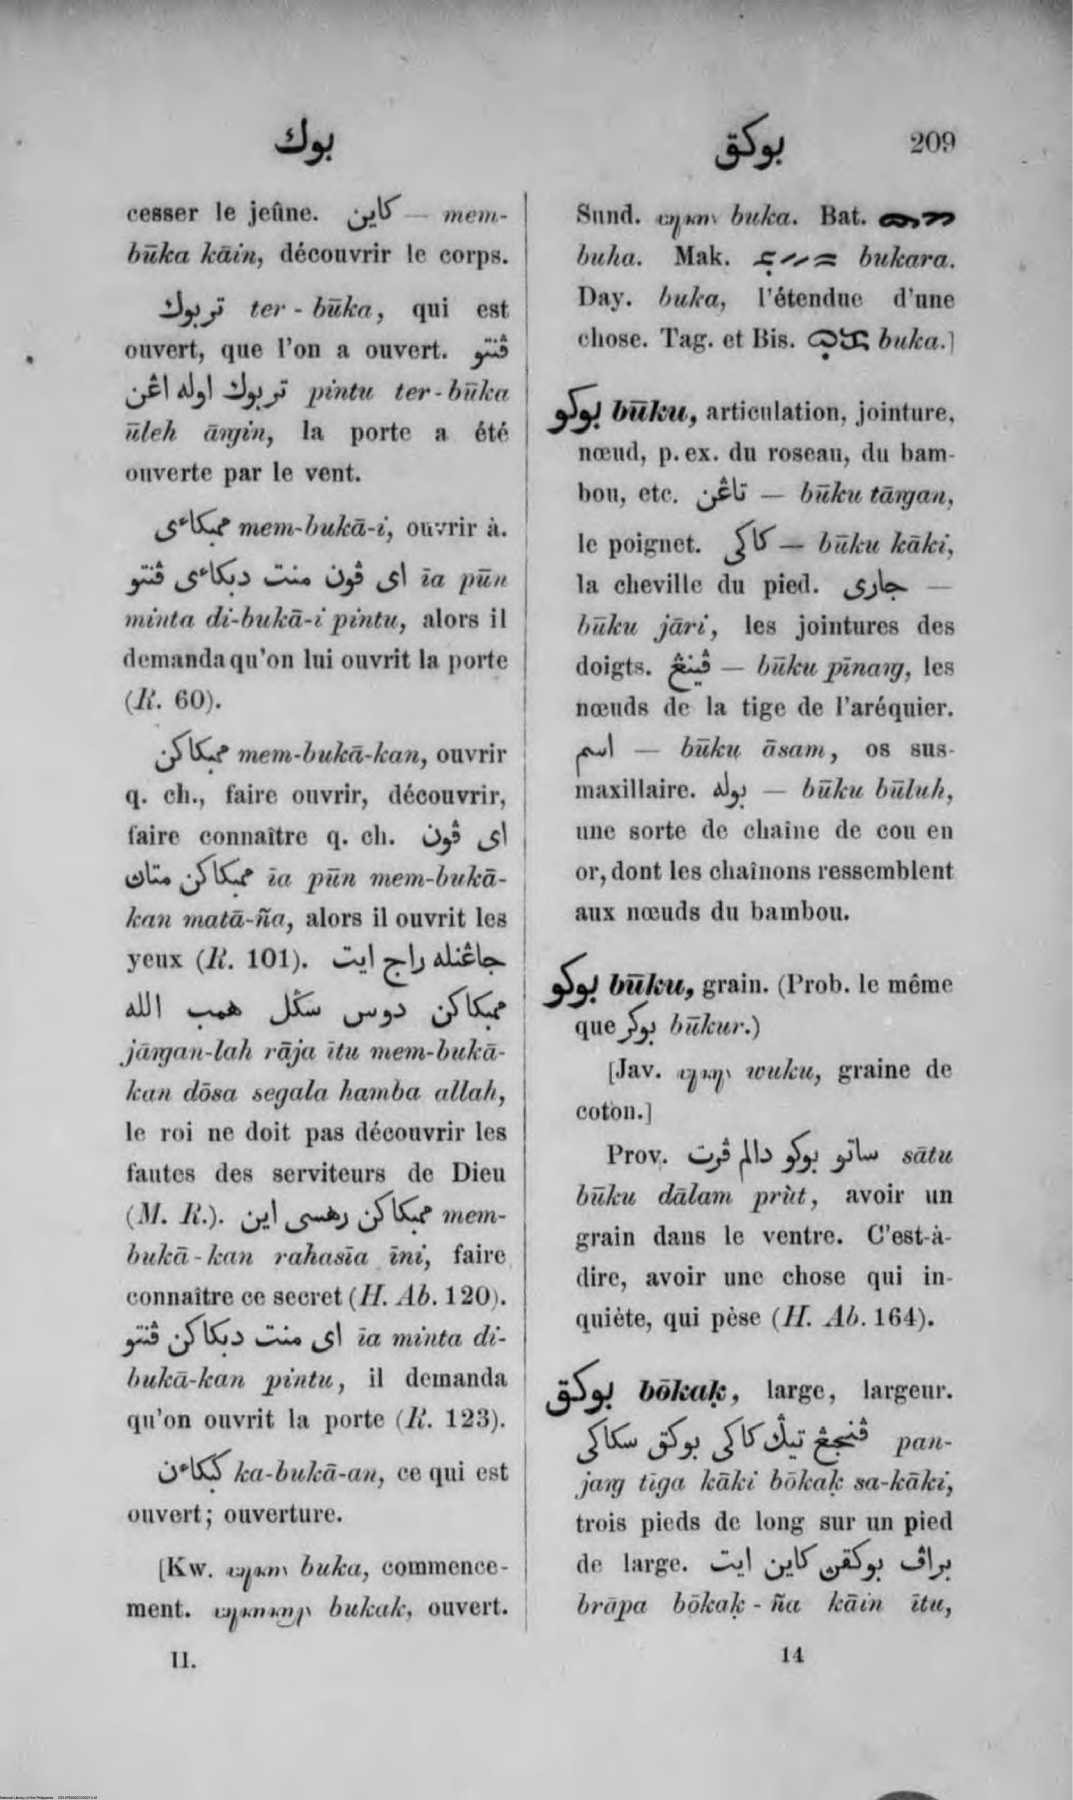 بوك
بوكق 209
cesser le jeûne. كاين — mem-
būka kāin, découvrir le corps.
تربوك ter-būka, qui est
ouvert, que l'on a ouvert. ڤنتو
تربوك اوله اڠن pintu ter-būka
ūleh āngin, la porte a été
ouverte par le vent.
ممبكاءى mem-bukā-i, ouvrir à.
اى ڤون منت دبكاءى ڤنتو īa pūn
minta di-bukā-i pintu, alors il
demanda qu'on lui ouvrit la porte
(R. 60).
ممبكاكن mem-bukā-kan, ouvrir
q. ch., faire ouvrir, découvrir,
faire connaître q. ch. اى ڤون
ممبكاكن متاڽ īa pūn mem-bukā-
kan matā-ña, alors il ouvrit les
yeux (R. 101). جاڠنله راج ايت
ممبكاكن دوس سڬل همب الله
jāngan-lah rāja ītu mem-bukā-
kan dōsa segala hamba allah,
le roi ne doit pas découvrir les
fautes des serviteurs de Dieu
(M. R.). ممبكاكن رهسى اين mem-
bukā-kan rahasīa īni, faire
connaître ce secret (H. Ab. 120).
اى منت دبكاكن ڤنتو īa minta di-
bukā-kan pintu, il demanda
qu'on ouvrit la porte (R. 123).
كبكاءن ka-bukā-an, ce qui est
ouvert; ouverture.
[Kw. buka, commence-
ment. bukak, ouvert.
II.
Sund. buka. Bat.
buha. Mak. bukara.
Day. buka, l'étendue d'une
chose. Tag. et Bis. buka.]
بوكو būku, articulation, jointure,
nœud, p. ex. du roseau, du bam-
bou, etc. تاڠن — būku tāngan,
le poignet. كاكى — būku kāki,
la cheville du pied. جارى —
būku jāri, les jointures des
doigts. ڤينڠ — būku pīnang, les
nœuds de la tige de l'aréquier.
اسم — būku āsam, os sus-
maxillaire. بوله — būku būluh,
une sorte de chaîne de cou en
or, dont les chaînons ressemblent
aux nœuds du bambou.
بوكو būku, grain. (Prob. le même
que بوكر būkur.)
[Jav. wuku, graine de
coton.]
Prov. ساتو بوكو دالم ڤرت sātu
būku dālam prùt, avoir un
grain dans le ventre. C'est-à-
dire, avoir une chose qui in-
quiète, qui pèse (H. Ab. 164).
بوكق bōkaḳ, large, largeur.
ڤنجڠ تيڬ كاكى بوكق سكاكى pan-
jang tīga kāki bōkaḳ sa-kāki,
trois pieds de long sur un pied
de large. براڤ بوكقن كاين ايت
brāpa bōkaḳ-ña kāin ītu,
14